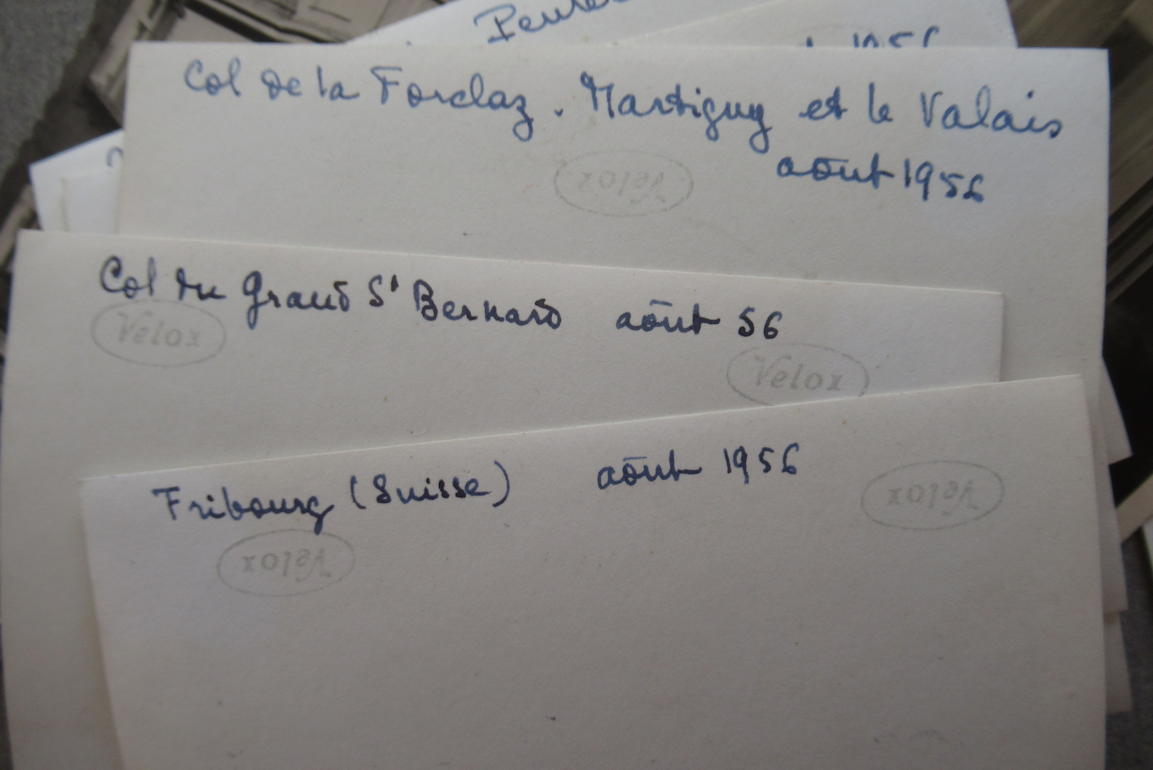 1956
Col de la Forclaz. Martigny et le Valais
août 1956
Velox
Col du Grand St Bernard août 56
Velox
Velox
Fribourg (Suisse) août 1956
Velox
Velox